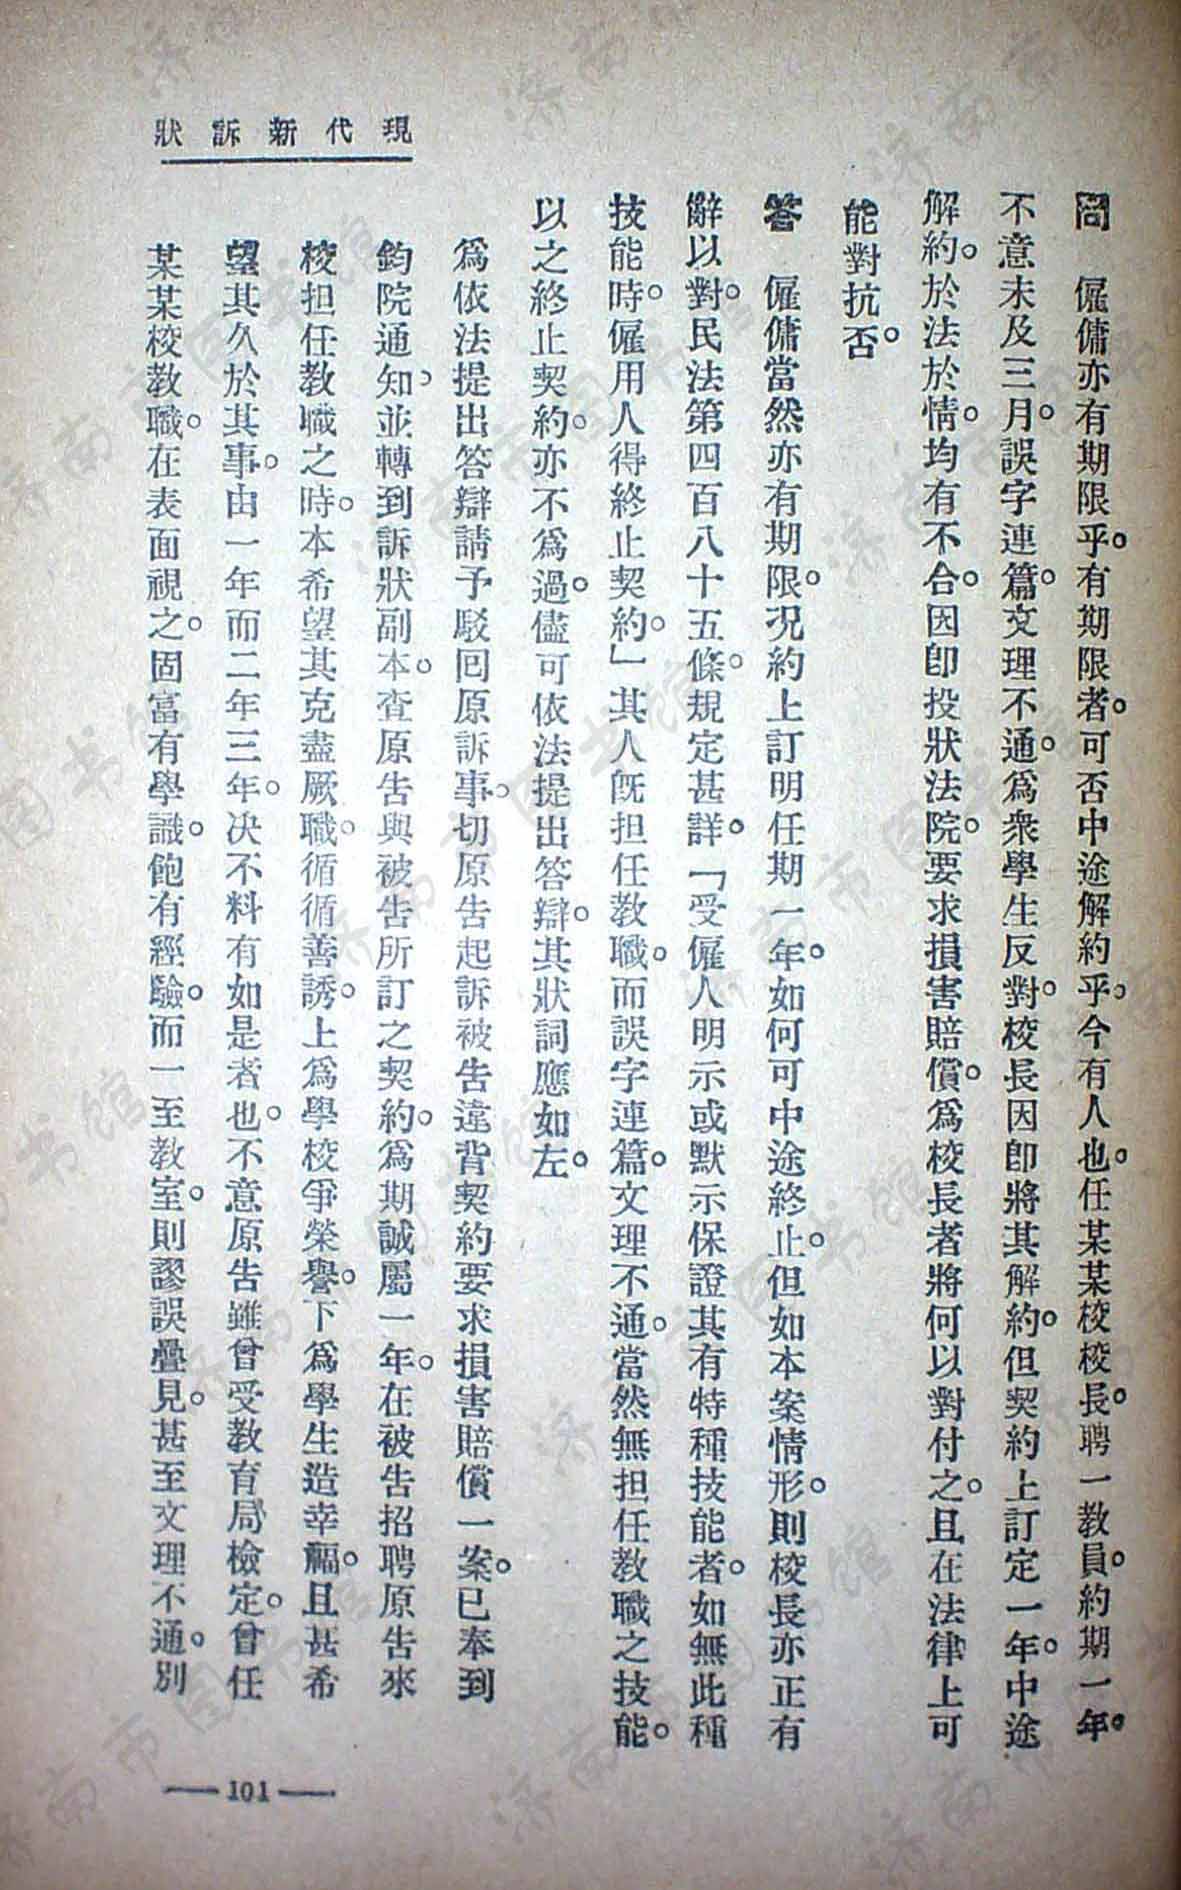 現代新訴狀
問　僱傭亦有期限乎。有期限者。可否中途解約乎。今有人也。任某某校校長。聘一教員。約期一年。
不意未及三月。誤字連篇。文理不通。爲衆學生反對。校長因卽將其解約。但契約上訂定一年。中途
解約。於法於情。均有不合。因卽投狀法院。要求損害賠償。爲校長者將何以對付之。且在法律上可
能對抗否。
答　僱傭當然亦有期限。况約上訂明任期一年。如何可中途終止。但如本案情形。則校長亦正有
辭以對。民法第四百八十五條。規定甚詳。「受僱人明示或默示保證其有特種技能者。如無此種
技能時。僱用人得終止契約。」其人旣担任教職。而誤字連篇。文理不通。當然無担任教職之技能。
以之終止契約。亦不爲過。儘可依法提出答辯。其狀詞應如左。
爲依法提出答辯請予駁回原訴事。切原告起訴被告違背契約要求損害賠償一案。已奉到
鈞院通知。並轉到訴狀副本。查原告與被告所訂之契約。爲期誠屬一年。在被告招聘原告來
校担任教職之時。本希望其克盡厥職。循循善誘。上爲學校爭榮譽。下爲學生造幸福。且甚希
望其久於其事。由一年而二年三年。决不料有如是者也。不意原告雖曾受教育局檢定。曾任
某某校教職。在表面視之。固富有學識。飽有經驗。而一至教室。則謬誤疊見。甚至文理不通。別
——101——
济南市图书馆